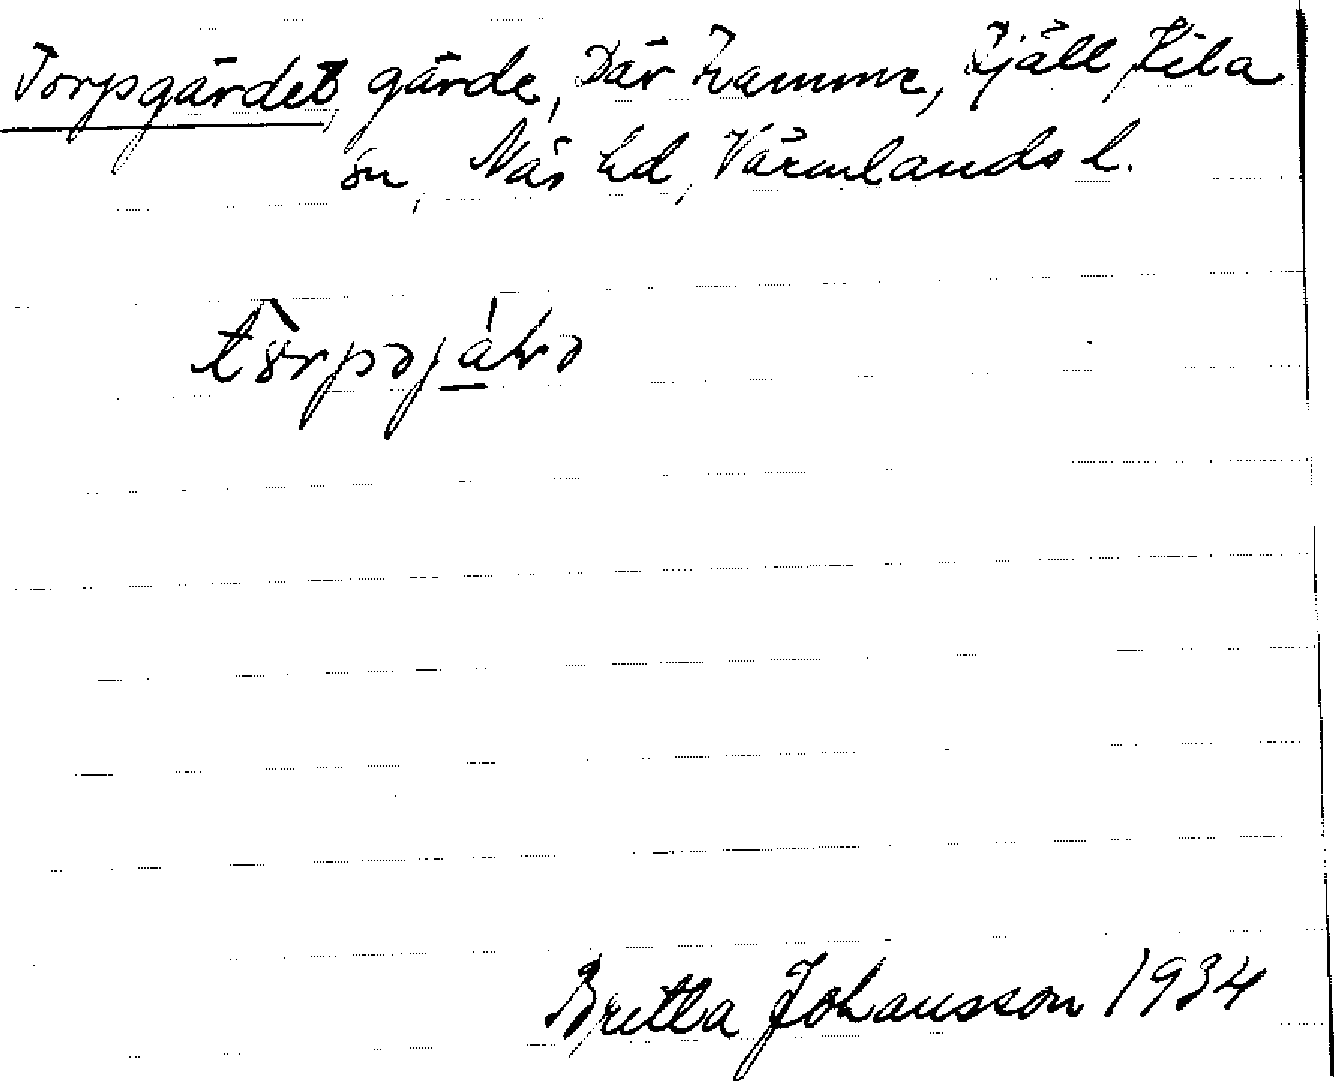 Torpgärdet, gärde, Där hamme, Kjäll Kila
sn, Näs hd, Värmlands l.
Britta Johansson 1934